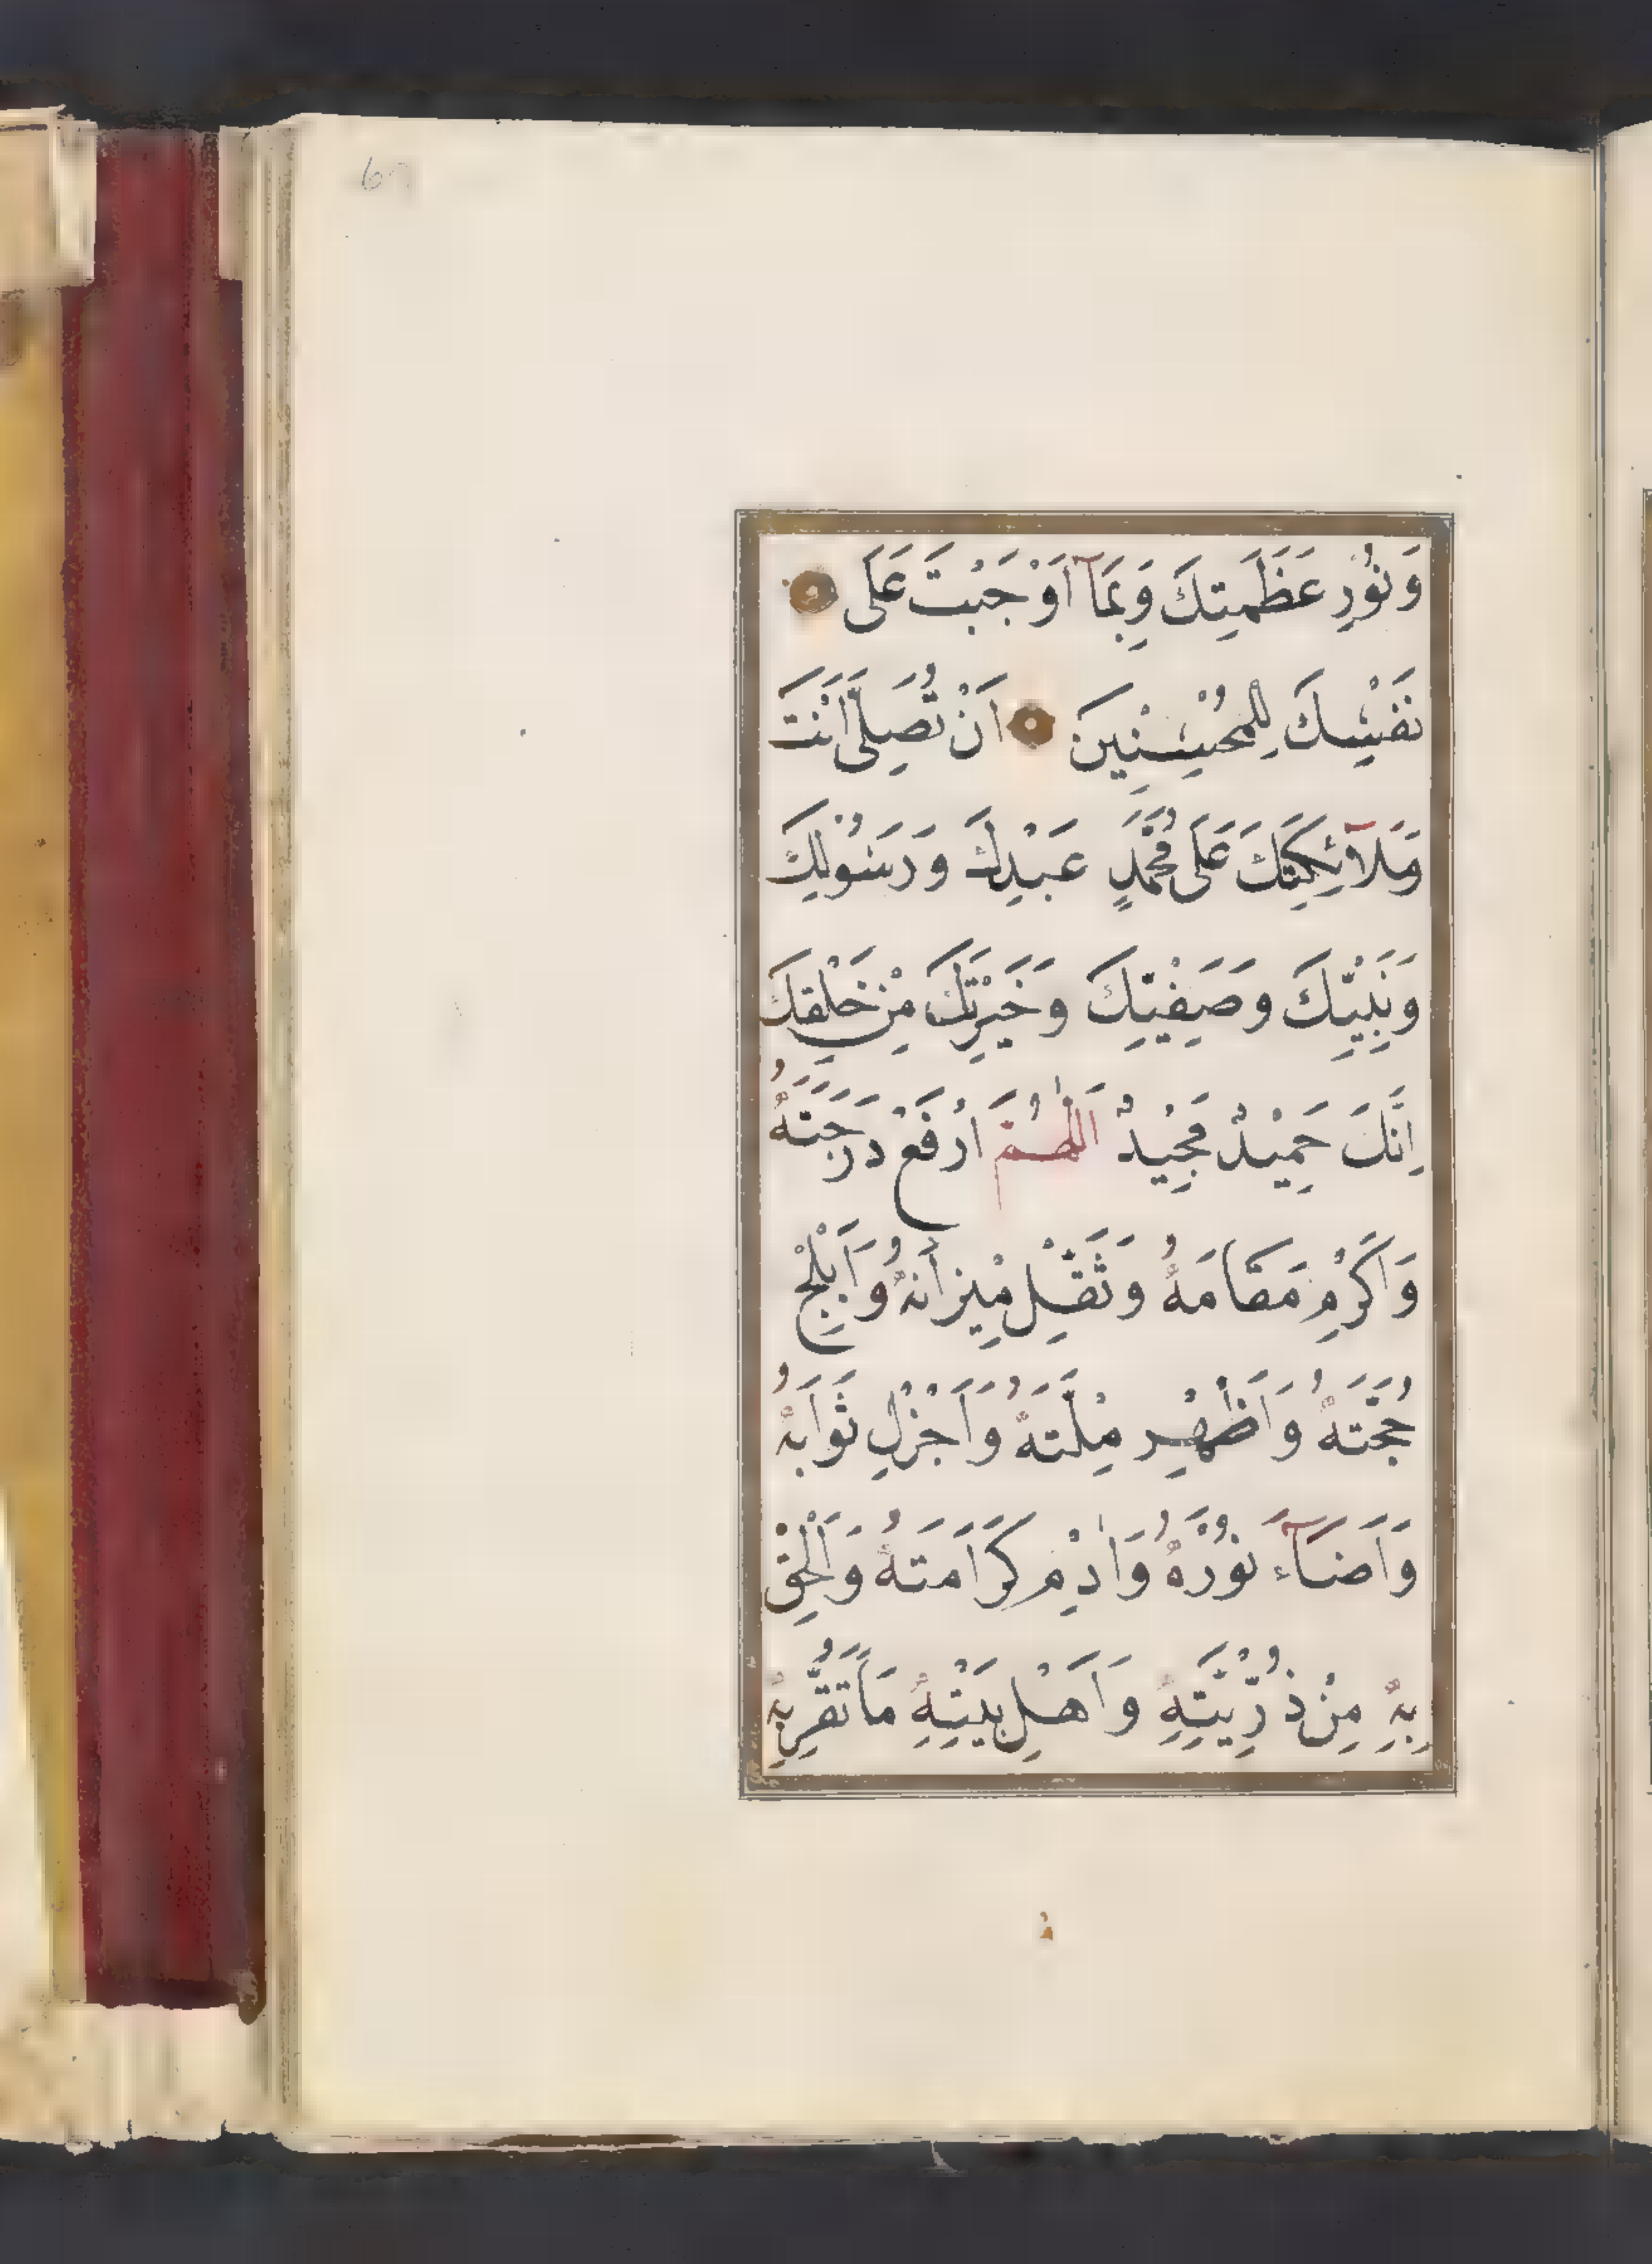 67
وَنُورِ عَظَمَتِكَ وَبِمَآ اَوْجَبْتَ عَلَى
نَفْسِكَ لِلْمُحْسِنِينَ اَنْ تُصَلِّىَ اَنْتَ
وَمَلَآئِكَتِكَ عَلَى مُحَمَّدٍ عَبْدِكَ وَرَسُولِكَ
وَنَبِيِّكَ وَصَفِيِّكَ وَخَيْرَتِكَ مِنْ خَلْقِكَ
اِنَّكَ حَمِيْدٌ مَجِيْدٌ اَللّٰهُمَّ ارْفَعْ دَرَجَتَهُ
وَاَكْرِمْ مَقَامَهُ وَثَقِّلْ مِيْزَانَهُ وَاَبْلِجْ
حُجَّتَهُ وَاَظْهِرْ مِلَّتَهُ وَاَجْزِلْ ثَوَابَهُ
وَاَضَآءَ نُوْرَهُ وَاَدِمْ كَرَامَتَهُ وَاَلْحِقْ
بِهِ مِنْ ذُرِّيَّتِهِ وَاَهْلِ بَيْتِهِ مَا تُقِرُّ بِهِ